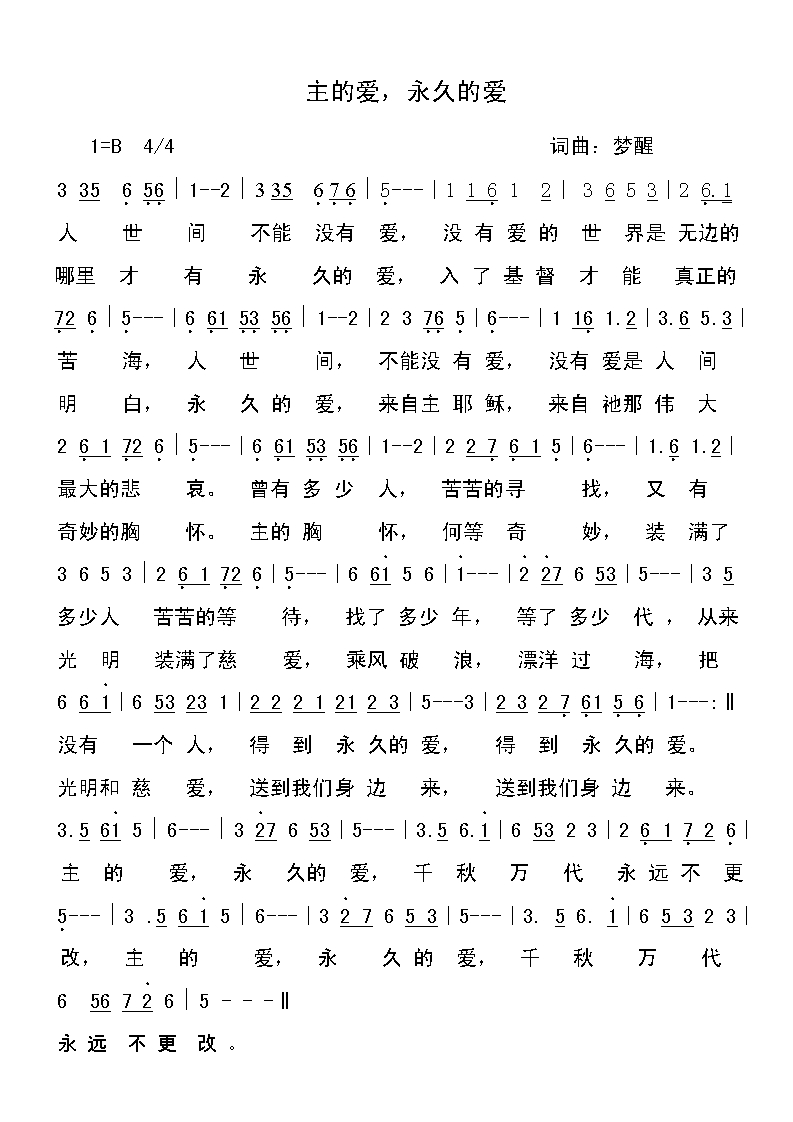 主的爱，永久的爱
1=B 4/4 词曲：梦醒
3 35 6 56｜1--2｜3 35 6 7 6｜5---｜1 1 6 1 2｜ 3 6 5 3｜2 6. 1
人 世 间 不能 没有 爱， 没 有 爱 的 世 界是 无边的
哪里 才 有 永 久的 爱， 入 了 基 督 才 能 真正的
72 6｜5---｜6 61 53 56｜1--2｜2 3 76 5｜6---｜1 16 1.2｜3.6 5.3｜
苦 海， 人 世 间， 不能没 有 爱， 没有 爱是 人 间
明 白， 永 久 的 爱， 来自主 耶 稣， 来自 祂那 伟 大
2 6 1 72 6｜5---｜6 61 53 56｜1--2｜2 2 7 6 1 5｜6---｜1.6 1.2｜
最大的悲 哀。 曾有 多 少 人， 苦苦的寻 找， 又 有
奇妙的胸 怀。 主的 胸 怀， 何等 奇 妙， 装 满了
3 6 5 3｜2 6 1 72 6｜5---｜6 61 5 6｜1---｜2 27 6 53｜5---｜3 5
多少人 苦苦的等 待， 找了 多少 年， 等了 多少 代 ，从来
光 明 装满了慈 爱， 乘风 破 浪， 漂洋 过 海， 把
6 6 1｜6 53 23 1｜2 2 2 1 21 2 3｜5---3｜2 3 2 7 61 5 6｜1---:‖
没有 一个 人， 得 到 永 久的 爱， 得 到 永 久的 爱。
光明和 慈 爱， 送到我们身 边 来， 送到我们身 边 来。
3.5 61 5｜6---｜3 27 6 53｜5---｜3.5 6.1｜6 53 2 3｜2 6 1 7 2 6｜
主 的 爱， 永 久的 爱， 千 秋 万 代 永 远 不 更
5---｜3 .5 6 1 5｜6---｜3 2 7 6 5 3｜5---｜3. 5 6. 1｜6 5 3 2 3｜
改， 主 的 爱， 永 久 的 爱， 千 秋 万 代
6 56 7 2 6｜5 - - -‖
永 远 不 更 改 。